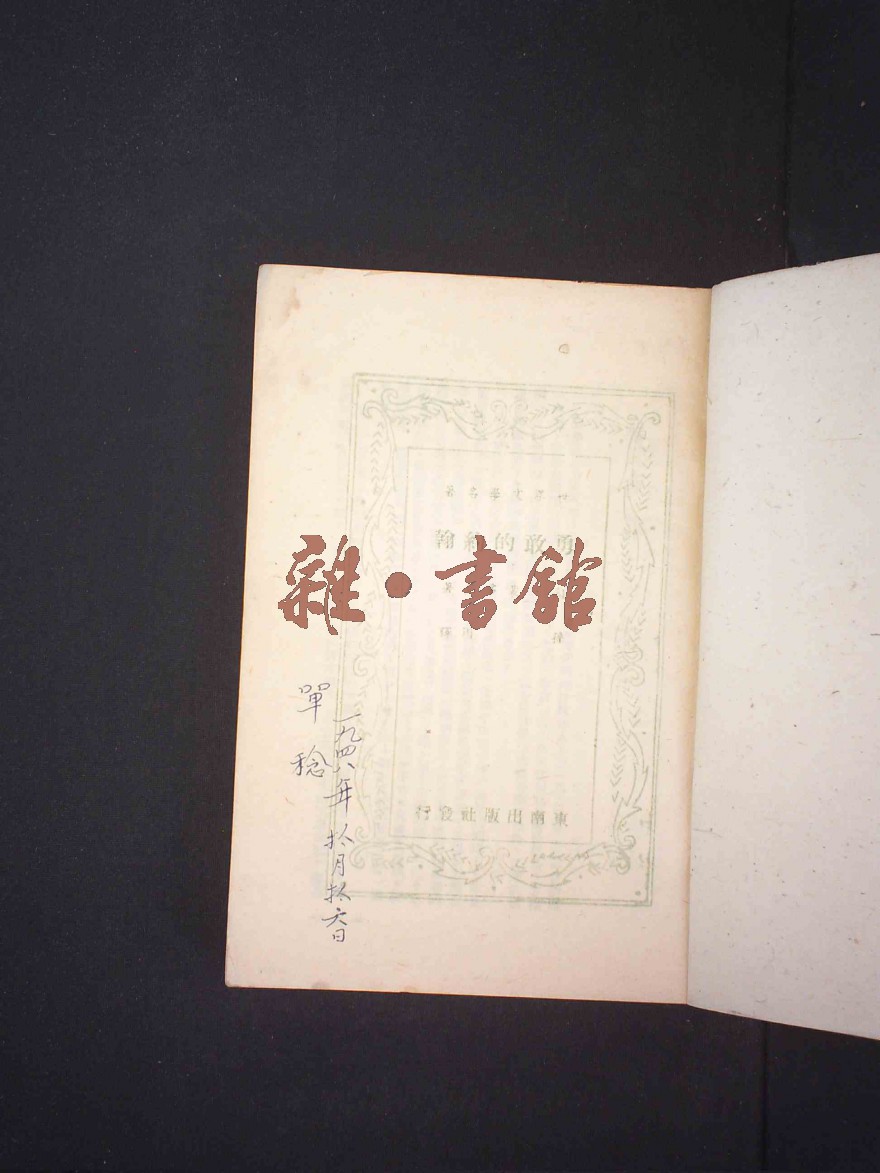 世界文學名著
勇敢的約翰
雜·書館
東南出版社發行
一九四八年 拾月拾六日
單稔